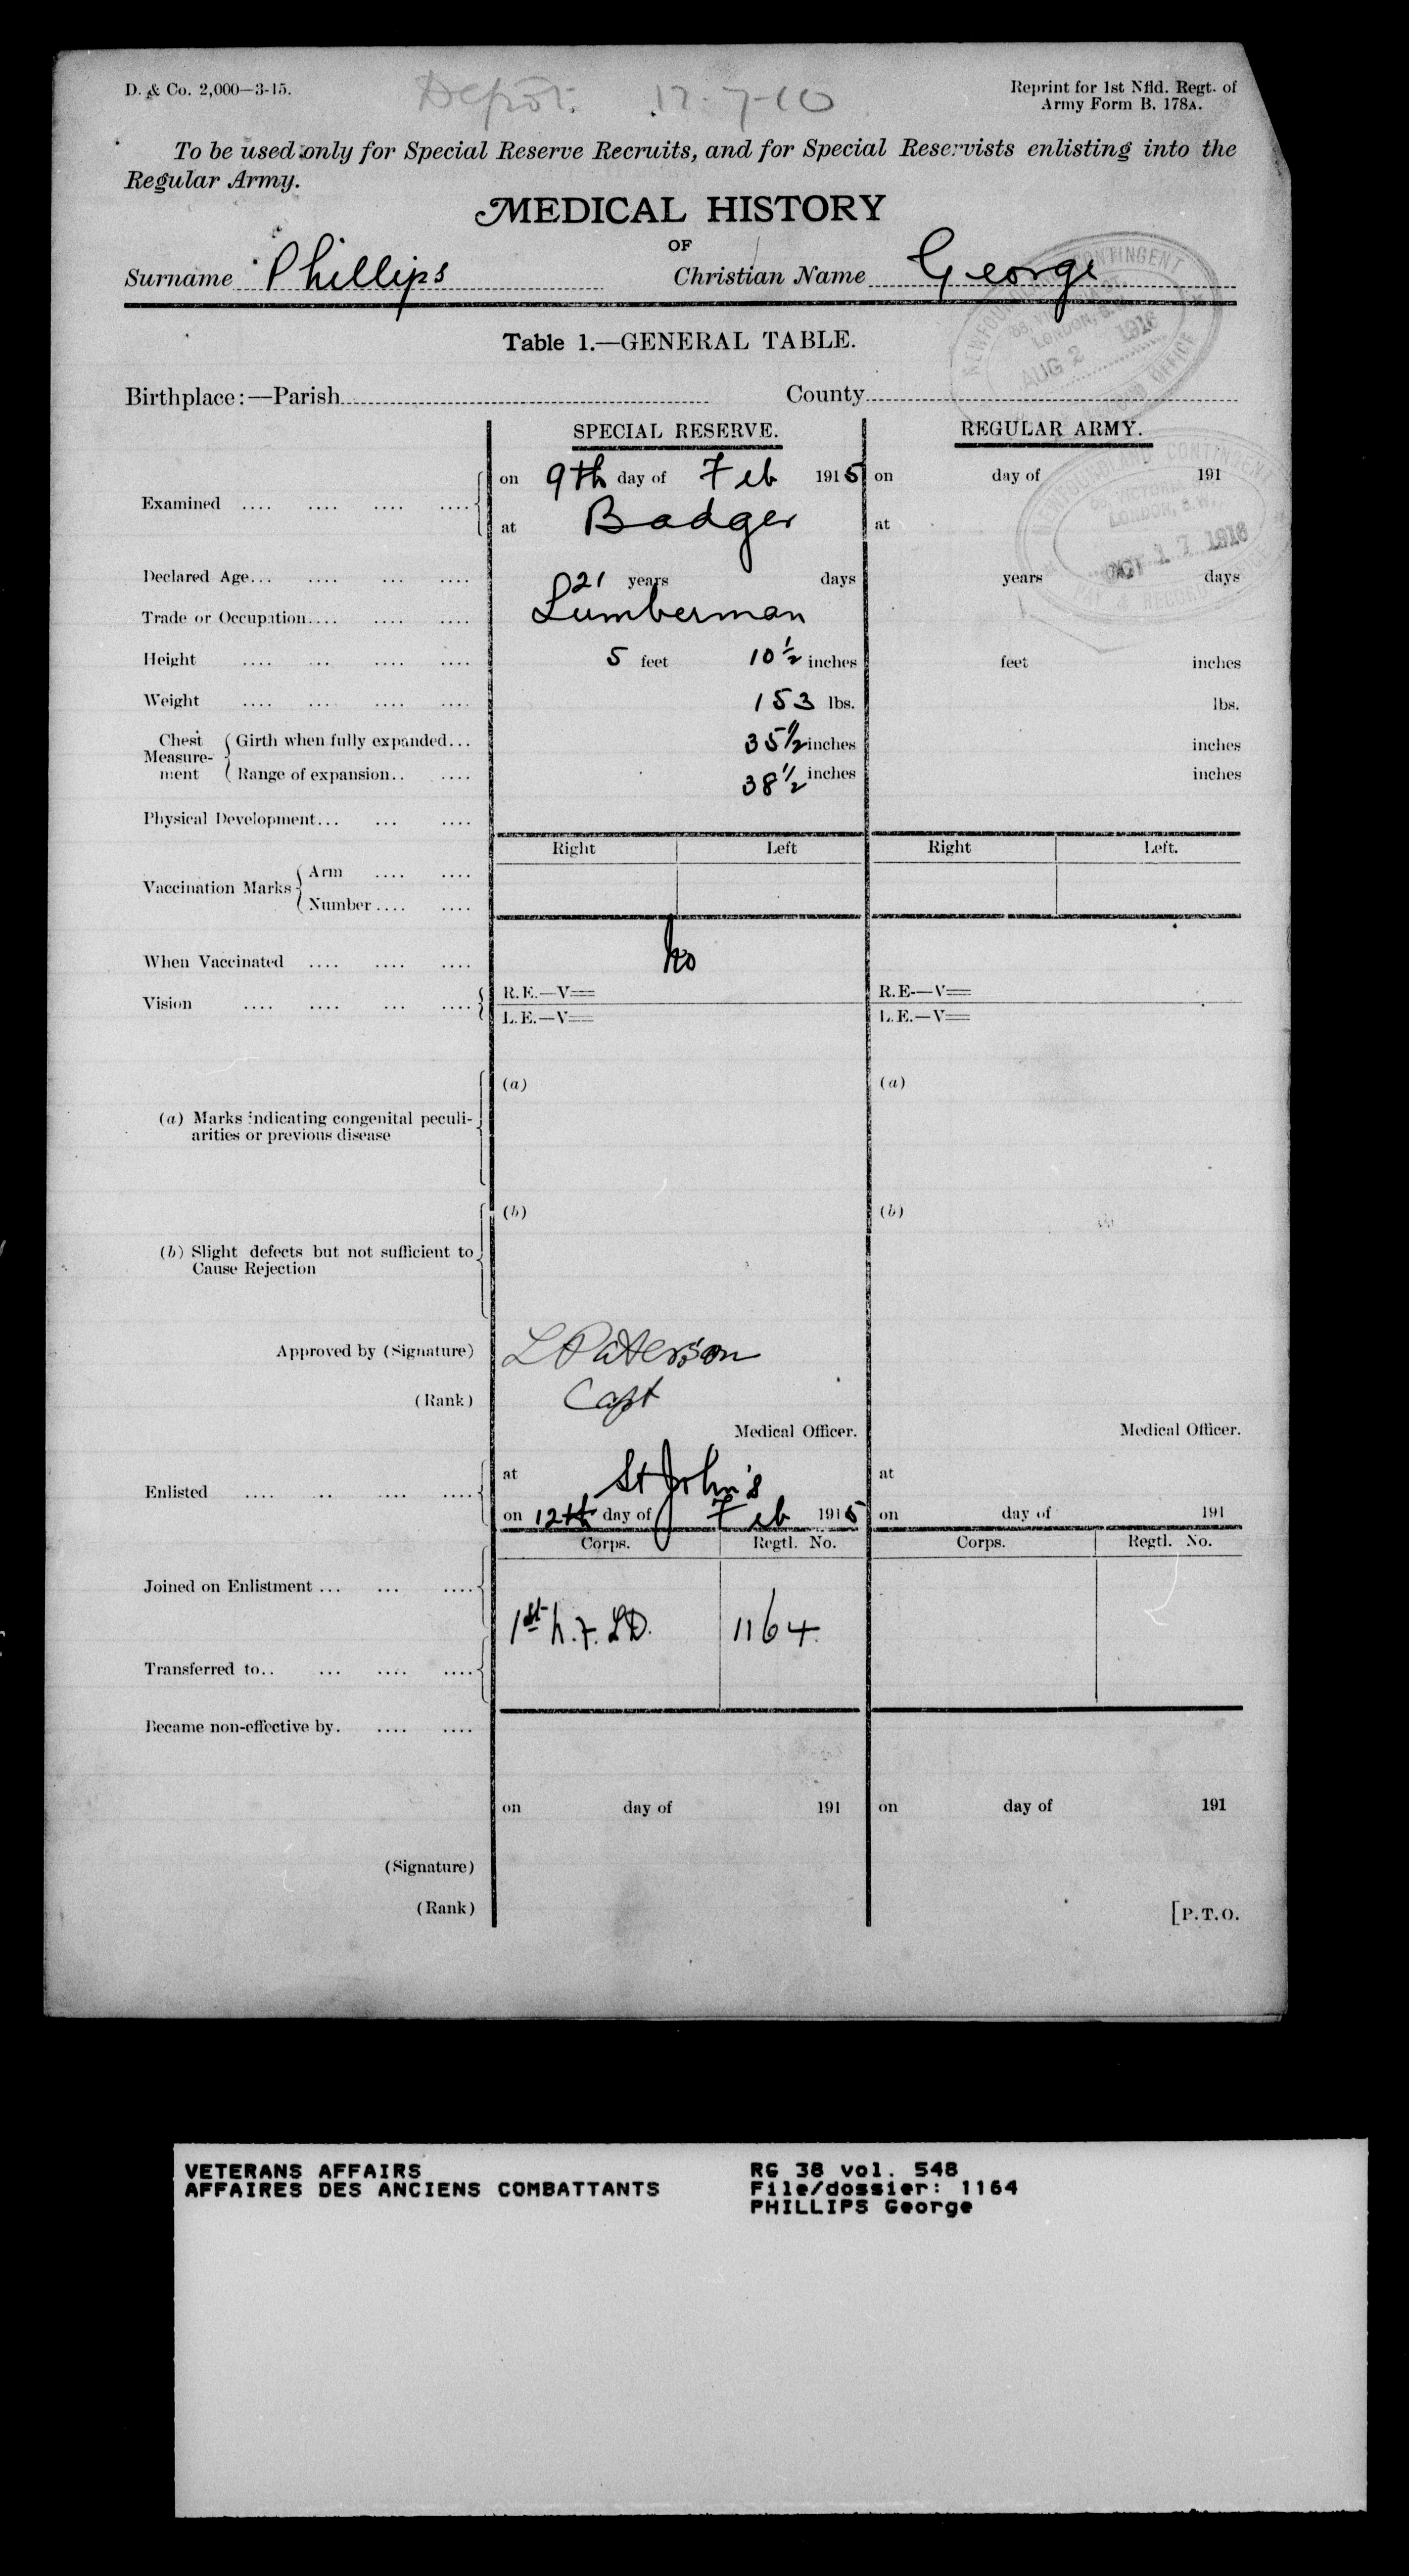 D. & Co. 2,000—3-15.
Depot. 17-7-10
Reprint for 1st Nfld. Regt. of
Army Form B. 178A.
To be used only for Special Reserve Recruits, and for Special Reservists enlisting into the
Regular Army.
MEDICAL HISTORY
OF
Surname Phillips Christian Name George
NEWFOUNDLAND CONTINGENT
58, VICTORIA ST.
LONDON, S.W.
AUG 2 1916
PAY & RECORD OFFICE
Table 1.—GENERAL TABLE.
Birthplace:—Parish County
SPECIAL RESERVE. REGULAR ARMY.
NEWFOUNDLAND CONTINGENT
58, VICTORIA ST.
LONDON, S.W.
OCT 17 1916
PAY & RECORD OFFICE
Examined .... .... .... .... on 9th day of Feb 1915 on day of 191
at Badger at
Declared Age... .... ... .... 21 years days years days
Trade or Occupation.... .... .... Lumberman
Height .... ... .... .... 5 feet 10 1/2 inches feet inches
Weight .... .... .... .... 153 lbs. lbs.
Chest Measurement Girth when fully expanded... 35 1/2 inches inches
Range of expansion.. .... 38 1/2 inches inches
Physical Development... ... ....
Right Left Right Left.
Vaccination Marks Arm .... ....
Number.... ....
When Vaccinated .... .... .... No
Vision .... .... ... .... R.E.—V= R.E.—V=
L.E.—V= L.E.—V=
(a) (a)
(a) Marks indicating congenital peculi-
arities or previous disease
(b) (b)
(b) Slight defects but not sufficient to
Cause Rejection
Approved by (Signature) L Paterson
(Rank) Capt
Medical Officer. Medical Officer.
Enlisted .... .. .... .... at St John's at
on 12th day of Feb 1915 on day of 191
Corps. Regtl. No. Corps. Regtl. No.
Joined on Enlistment ... ... ....
1st N.F.LD. 1164
Transferred to.. ... .... ....
Became non-effective by. .... ....
on day of 191 on day of 191
(Signature)
(Rank)
[P.T.O.
VETERANS AFFAIRS
AFFAIRES DES ANCIENS COMBATTANTS
RG 38 vol. 548
File/dossier: 1164
PHILLIPS George